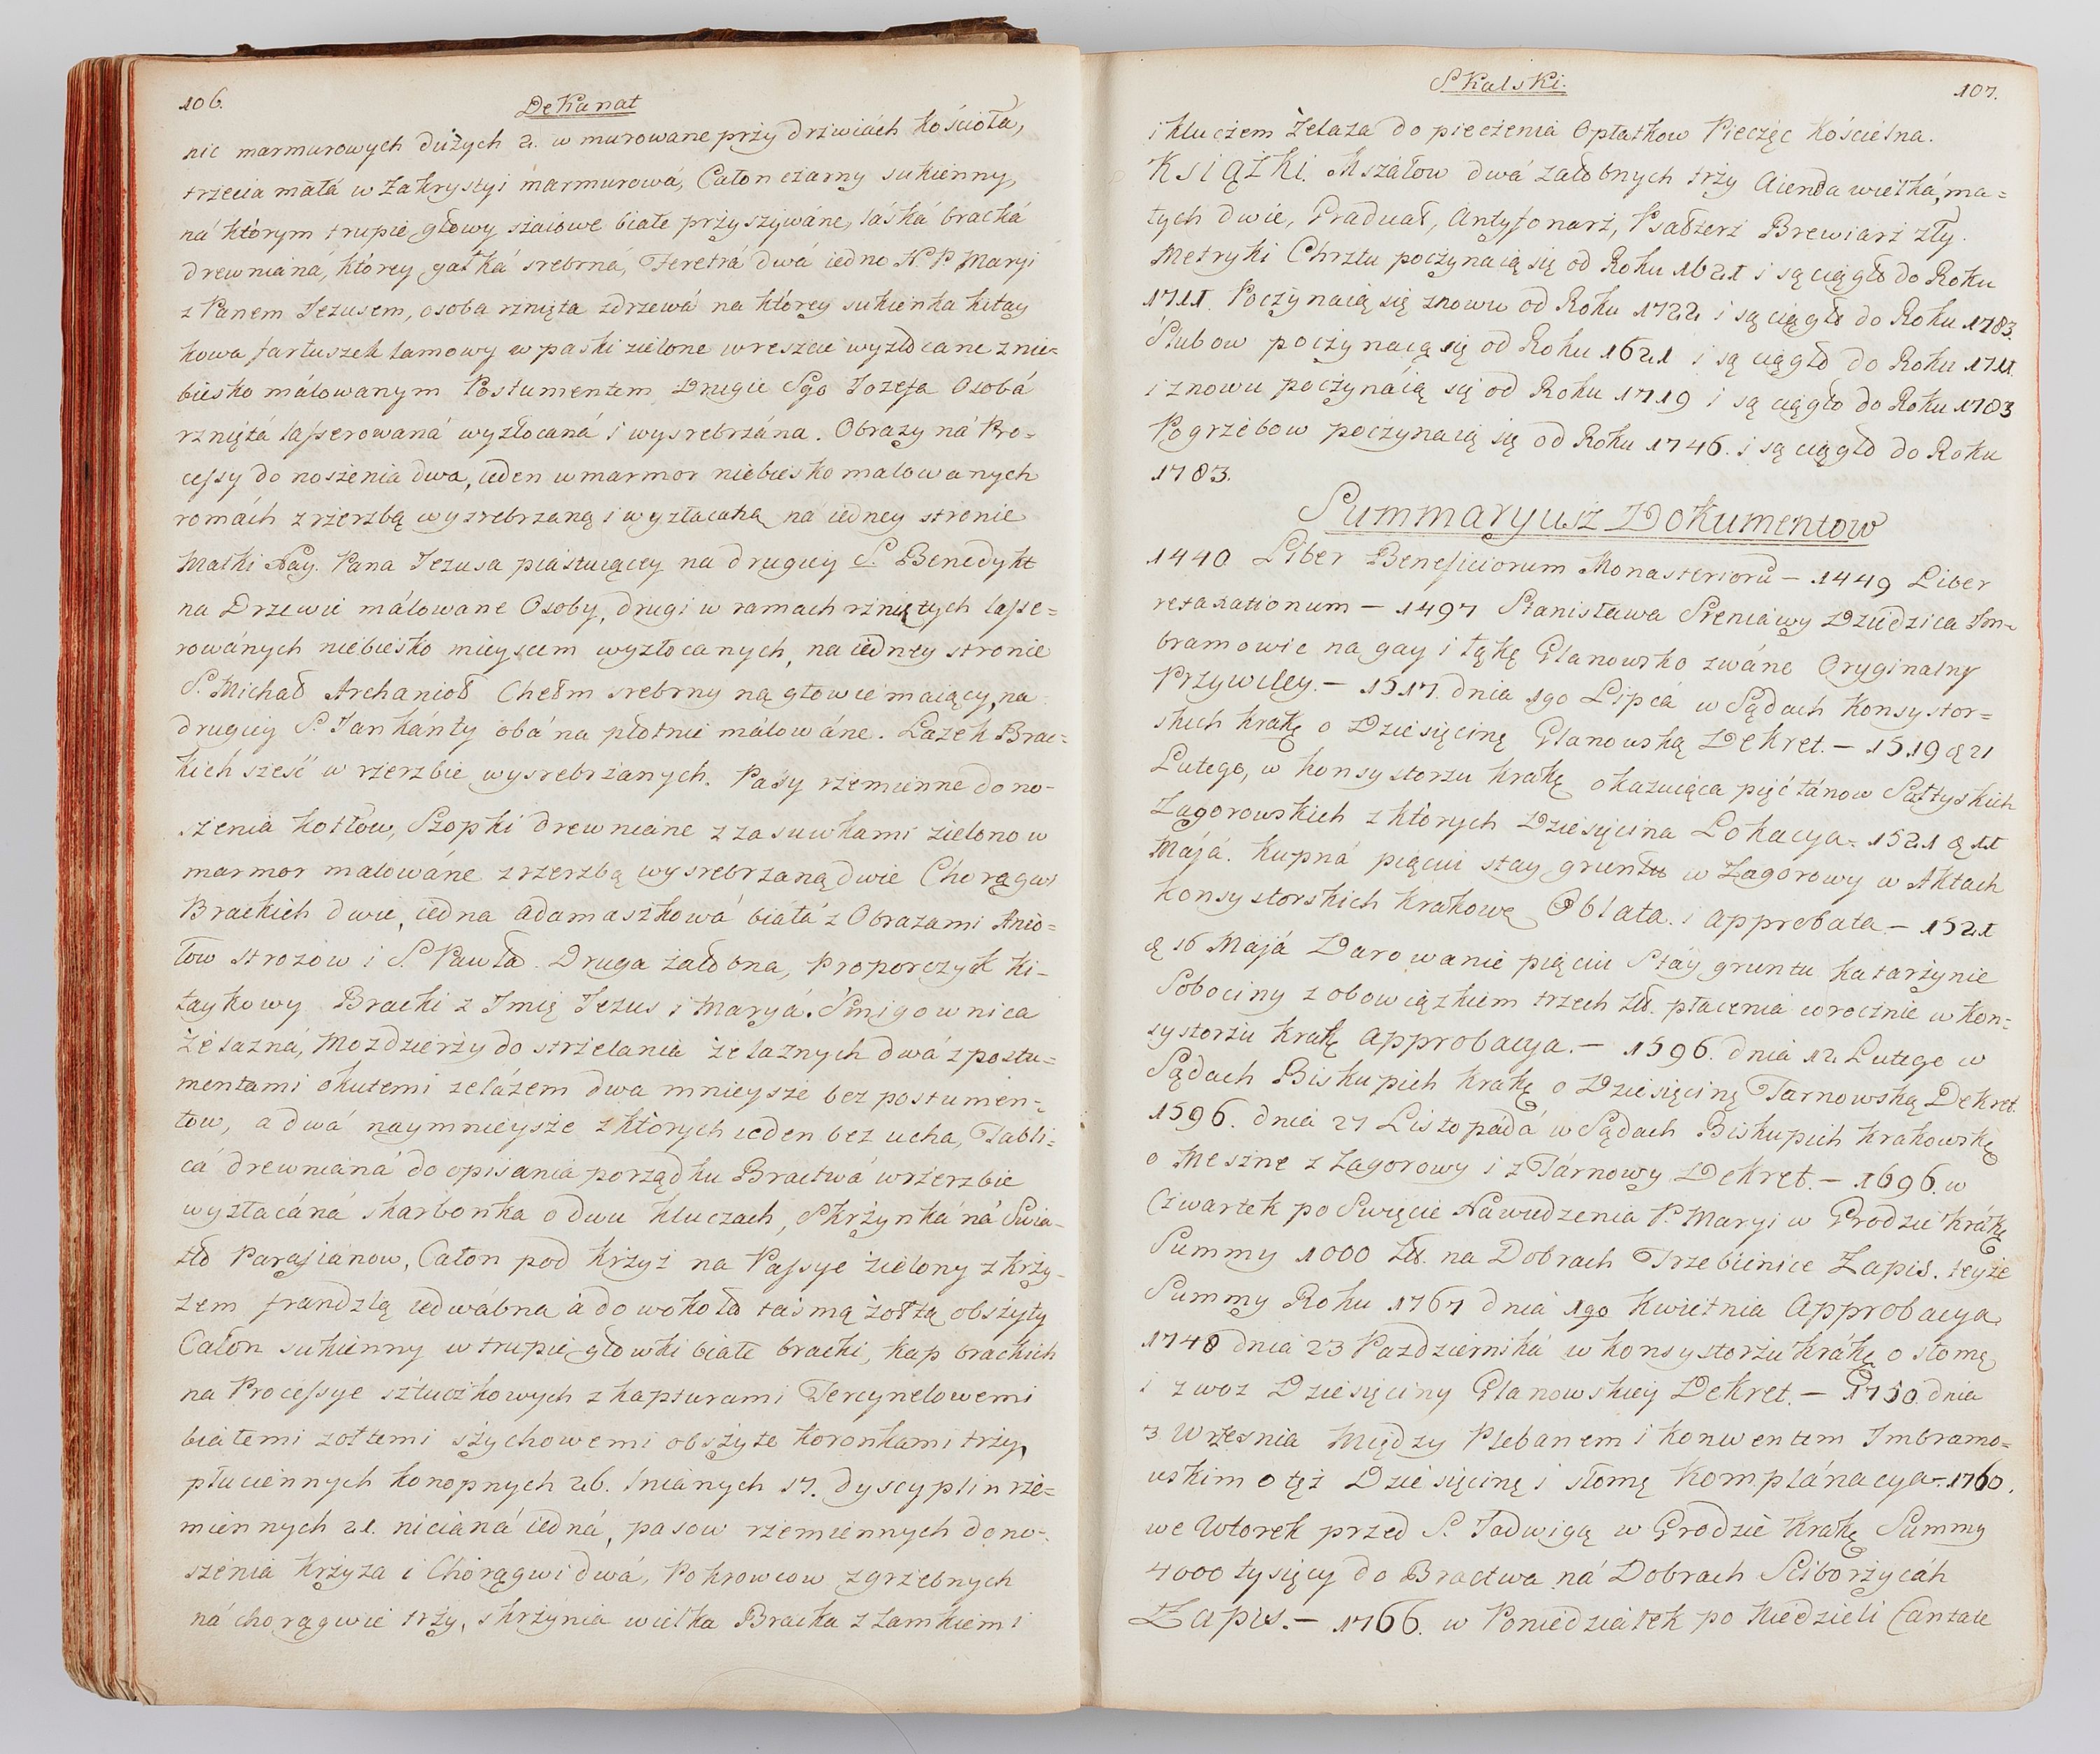 106.
DeKanat
nic marmurowych dużych 2. w murowane przy drzwiách Kościoła,
trzecia máłá w Zakrystyi marmurowá, Całon czarny sukienny,
ná którym trupie głowy szaiowe białe przyszywáne, láská bracká
drewnianá, którey gałká srebrná, Feretrá dwá iedno N. P. Maryi
z Panem Jezusem, osoba rznięta zdrzewá na którey sukienka kitay
kowa fartuszek lamowy w paski zielone wreszcie wyzłocane z nie=
biesko málowanym Postumentem Drugie Sgo Jozefa Osobá
rzniętá lasserowaná wyzłocaná i wysrebrzána. Obrazy ná Pro=
cessy do noszenia dwa, ieden w marmor niebiesko malowanych
romách z rzerzbą wysrebrzaną i wyzłacaną na iedney stronie
Matki Nay. Pana Jezusa piástuiącey na drugiey S. Benedykt
na Drzewie málowane Osoby, drugi w ramach rzniętych lasse=
rowánych niebiesko mieyscem wyzłocanych, na iedney stronie
S. Michał Archanioł Chełm srebrny ną głowie maiący, na
drugiey S. Jan Kánty obá na płotnie málowáne. Lazek Brac=
kich sześć w rzerzbie wysrebrzanych. Pásy rzemienne do no-
szenia kotłow, Szopki drewniáne z zasuwkami zielono w
marmor malowáne z rzerzbą wysrebrzaną dwie Chorągwi
Brackich dwie, iedna adamaszkowá biáłá z Obrazami Anio=
łow Strozow i S. Pawła. Druga żałobna, Proporczyk Ki-
taykowy Bracki z Imię Jezus i Maryá. Smigownica
żelazná, Mozdzierzy do strzelania żelaznych dwá z postu=
mentami okutemi zelázem dwa mnieysze bez postumen=
tow, a dwá naymnieysze z których ieden bez ucha, Tabli=
cá drewnianá do opisania porządku Bractwá w rzerzbie
wyzłacáná skarbonka o dwu kluczach, Skrzynká ná Swia-
tło Parafianow, Całon pod krzyż na Passye zielony z krzy-
zem frandzlą iedwábna á do wokoła tasmą żołtą obszyty
Całon sukienny w trupie głowki białe bracki, kap brackich
na Processye sztuczkowych z kapturami Tercynelowemi
białemi zołtemi szychowemi obszyte koronkami trzy,
płuciennych konopnych 26. lnianych 17. dyscyplin rze=
miennych 21. nicianá iedná, pasow rzemiennych do no=
szenia krzyza i Chorągwi dwá, Pokrowcow zgrzebnych
ná chorągwie trzy, skrzynia wielka Bracka z zamkiem i
Skalski.
107.
i kluczem żelaza do pieczenia Opłatkow Pieczęc Kościelna.
KSIĄŻKI. Mszáłow dwá żałobnych trzy Aienda wielká, ma=
łych dwie, Graduał, Antyfonarż, Psałterz Brewiarz zły.
Metryki Chrztu poczynaią się od Roku 1621 i są ciągło do Roku
1711 Poczynaią się znowu od Roku 1722 i są ciągło do Roku 1783.
Slubow poczynaią się od Roku 1621 i są ciągło do Roku 1711.
i znowu poczynáią się od Roku 1719 i są ciągło do Roku 1783
Pogrzebow poczynaią się od Roku 1746. i są ciągło do Roku
1783.
Summaryusz Dokumentow
1440 Liber Beneficiorum Monasteriorū – 1449 Liber
retaxationum – 1497 Stanisława Sreniáwy Dziedzica Im=
bramowic na gay i łąkę Glanowsko zwáne Oryginalny
Przywiley. – 1517. dnia 1go Lipca w Sądach Konsystor=
skich Krakę o Dziesięcinę Glanowską Dekret. – 1519 ą 21
Lutego, w Konsystorzu Krakę okazuiąca pięć łánow Sołtyskich
Zagorowskich z których Dziesięcina Lokacya. 1521 ą 11
Májá. Kupná pięciu stay gruntu w Zagorowy w Aktach
Konsystorskich Krakowę Oblata i approbata – 1521
ą 16 Májá Darowanie pięciu Stáy gruntu Katarzynie
Sobociny z obowiązkiem trzech zł. płacenia corocznie w Kon=
systorzu Krakę approbacya. – 1596. dnia 12 Lutego w
Sądach Biskupich Krakę o Dziesięcinę Tarnowską Dekret.
1596. dnia 27 Listopádá w Sądach Biskupich Krakowskę
o Meszne z Zagorowy i z Tárnowy Dekret. – 1696. w
Czwartek po Swięcie Nawiedzenia P. Maryi w Grodzie Krákę
Summy 1000 Zł. na Dobrach Trzebienice Zapis. teyże
Summy Roku 1767 dnia 1go Kwietnia Approbacya.
1748 dnia 23 Pazdziernika w Konsystorzu Krákę o słomę
i zwoz Dziesięciny Glanowskiey Dekret. – 1750. dnia
3 Wrzesnia Między Plebanem i Konwentem Imbramo=
wskim o też Dziesięcinę i słomę Komplánacya. 1760.
we Wtorek przed S. Jadwigą w Grodzie Krakę Summy
4000 tysięcy do Bractwa ná Dobrach Sciborzycách
Zapis. – 1766. w Poniedziałek po Niedzieli Cantate